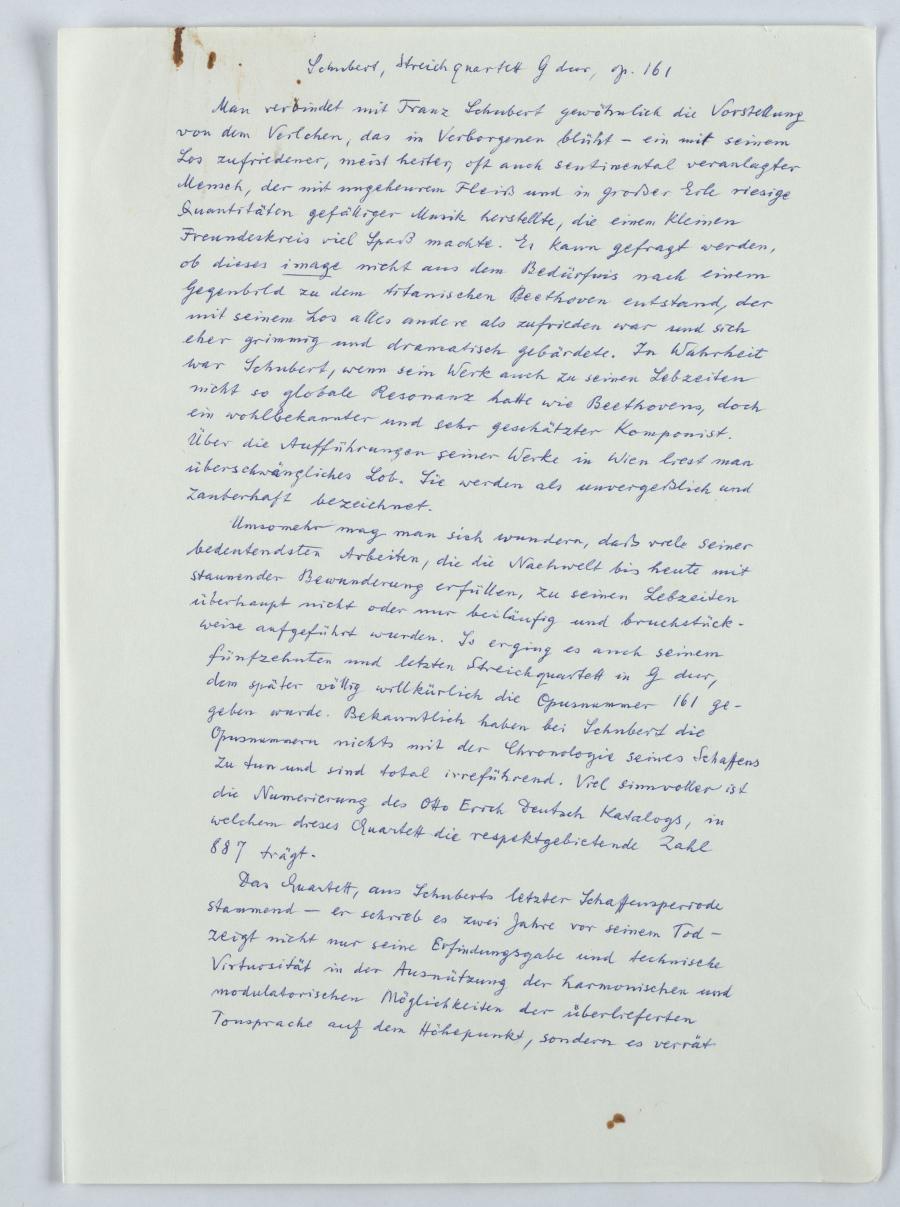 Schubert, Streichquartett G dur, op. 161
Man verbindet mit Franz Schubert gewöhnlich die Vorstellung
von dem Veilchen, das im Verborgenen blüht – ein mit seinem
Los zufriedener, meist heiter, oft auch sentimental veranlagter
Mensch, der mit ungeheurem Fleiß und in großer Eile riesige
Quantitäten gefälliger Musik herstellte, die einem kleinen
Freundeskreis viel Spaß machte. Es kann gefragt werden,
ob dieses image nicht aus dem Bedürfnis nach einem
Gegenbild zu dem titanischen Beethoven entstand, der
mit seinem Los alles andere als zufrieden war und sich
eher grimmig und dramatisch gebärdete. In Wahrheit
war Schubert, wenn sein Werk auch zu seinen Lebzeiten
nicht so globale Resonanz hatte wie Beethovens, doch
ein wohlbekannter und sehr geschätzter Komponist.
Über die Aufführungen seiner Werke in Wien liest man
überschwängliches Lob. Sie werden als unvergeßlich und
zauberhaft bezeichnet.
Umsomehr mag man sich wundern, daß viele seiner
bedeutendsten Arbeiten, die die Nachwelt bis heute mit
staunender Bewunderung erfüllen, zu seinen Lebzeiten
überhaupt nicht oder nur beiläufig und bruchstück-
weise aufgeführt wurden. So erging es auch seinem
fünfzehnten und letzten Streichquartett in G dur,
dem später völlig willkürlich die Opusnummer 161 ge-
geben wurde. Bekanntlich haben bei Schubert die
Opusnummern nichts mit der Chronologie seines Schaffens
zu tun und sind total irreführend. Viel sinnvoller ist
die Numerierung des Otto Erich Deutsch Katalogs, in
welchem dieses Quartett die respektgebietende Zahl
887 trägt.
Das Quartett, aus Schuberts letzter Schaffensperiode
stammend – er schrieb es zwei Jahre vor seinem Tod –
zeigt nicht nur seine Erfindungsgabe und technische
Virtuosität in der Ausnützung der harmonischen und
modulatorischen Möglichkeiten der überlieferten
Tonsprache auf dem Höhepunkt, sondern es verrät